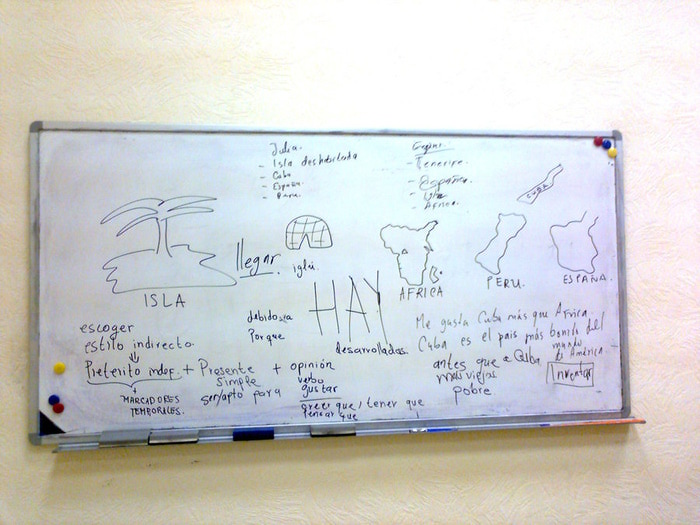 Julia.
- Isla deshabitada
- Cuba
- España
- Peru.
- Tenerife.
- España.
- Isla
- Africa.
CUBA
llegar
iglú.
ISLA
HAY
AFRICA
PERU.
ESPAÑA.
debido a
Porque
desarrolladas.
escoger
estilo indirecto.
Preterito indef. + Presente + opinión
simple
ser/apto para
verbo
gustar
creer que, tener que
pensar que
MARCADORES
TEMPORALES.
Me gusta Cuba más que Africa.
Cuba es el país más bonito del
mundo
de América.
antes que a Cuba
más viejos
pobre
Inventar